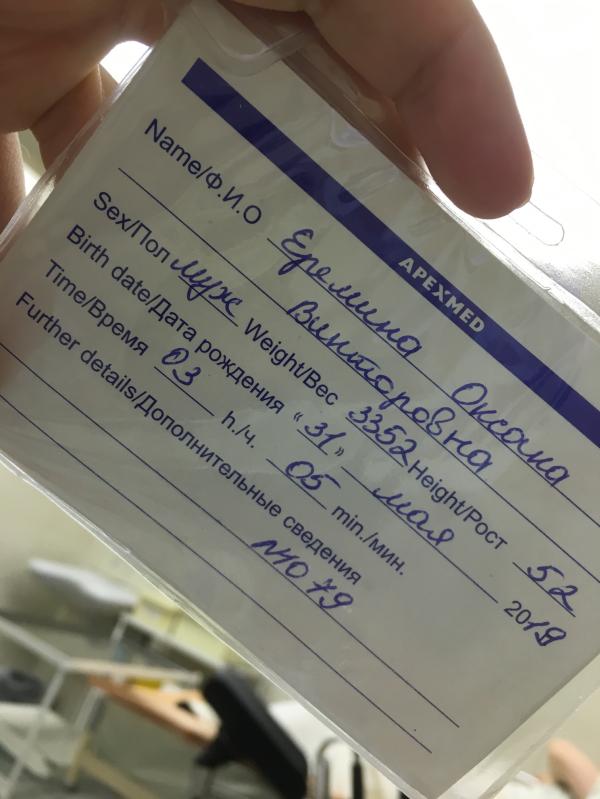 APEXMED
Name/Ф.И.О Еремина Оксана
Викторовна
Sex/Пол муж Weight/Вес 3352 Height/Рост 52
Birth date/Дата рождения «31» мая 2019
Time/Время 03 h./ч. 05 min./мин.
Further details/Дополнительные сведения
N1079